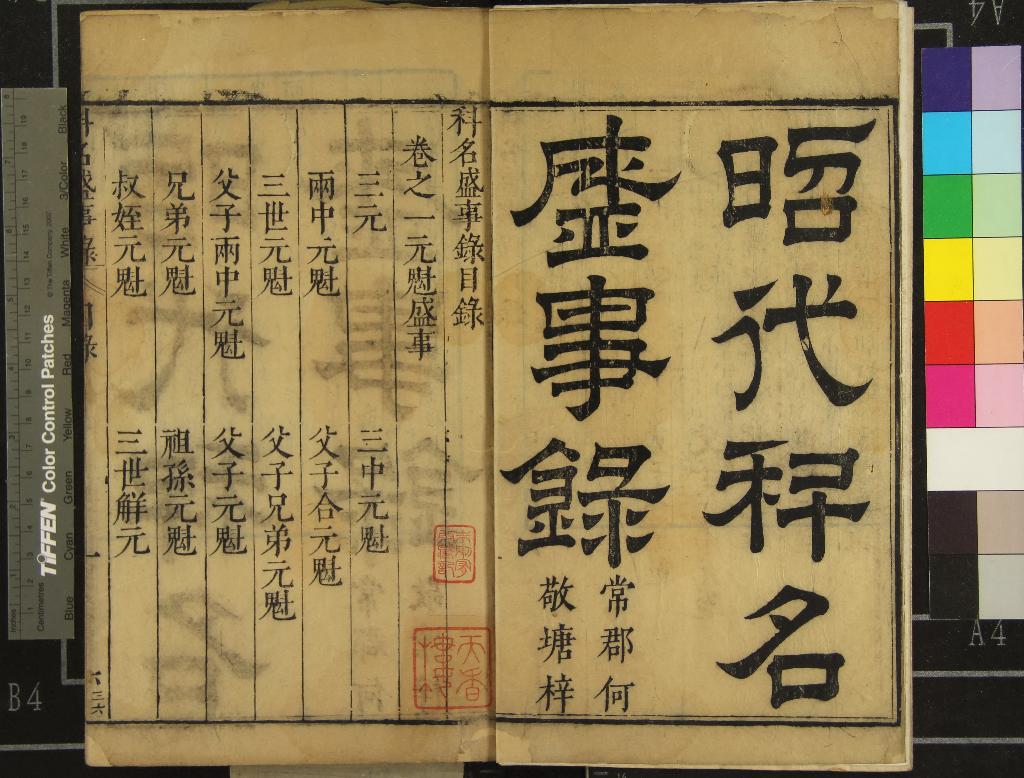 昭代科名
盛事錄
常郡何
敬塘梓
科名盛事錄目錄
卷之一元魁盛事
三元 三中元魁
兩中元魁 父子合元魁
三世元魁 父子兄弟元魁
父子兩中元魁 父子元魁
兄弟元魁 祖孫元魁
叔姪元魁 三世解元
科名盛事錄 目錄 一 六三六
天香
TIFFEN Color Control Patches
© The Tiffen Company, 2007
Inches
Centimetres
Blue Cyan Green Yellow Red Magenta White 3/Color Black
B4
A4
A4